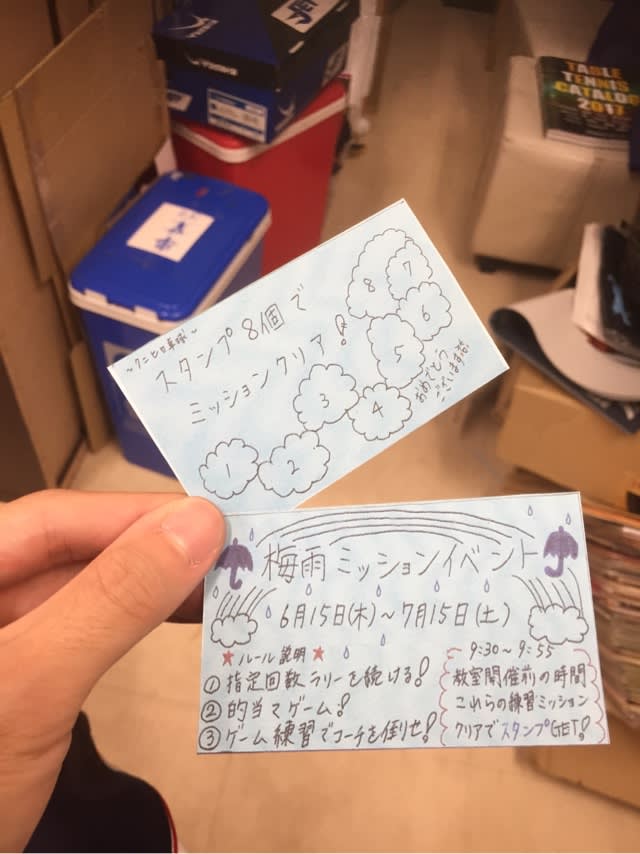 TABLE
TENNIS
CATALOG
2017
スタンプ8個で
ミッションクリア!
1
2
3
4
5
6
7
8
おめでとう
ございます
梅雨ミッションイベント
6月15日(木)~7月15日(土)
★ルール説明★
①指定回数ラリーを続ける!
②的当てゲーム!
③ゲーム練習でコーチを倒せ!
9:30~9:55
教室開催前の時間
これらの練習ミッション
クリアでスタンプGET!